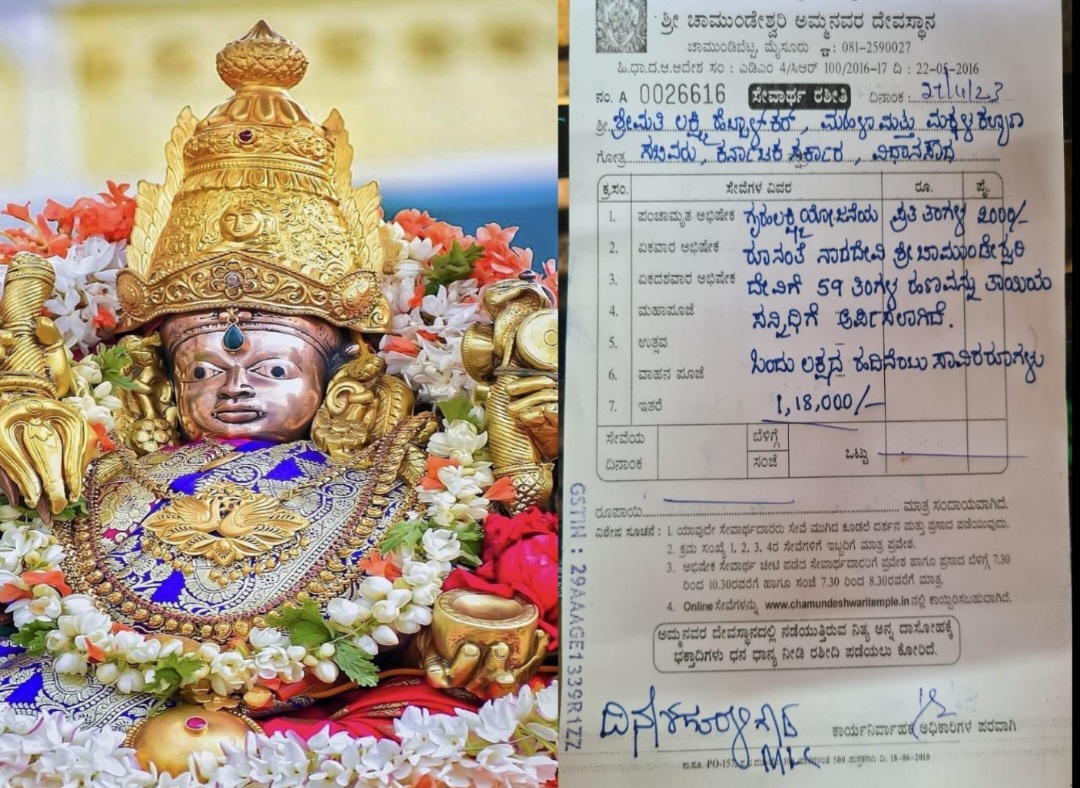 ಶ್ರೀ ಚಾಮುಂಡೇಶ್ವರಿ ಅಮ್ಮನವರ ದೇವಸ್ಥಾನ
ಚಾಮುಂಡಿಬೆಟ್ಟ, ಮೈಸೂರು ☎: 081-2590027
ಹಿ.ಧಾ.ದ.ಆ.ಆದೇಶ ಸಂ : ಎಡಿಎಂ 4/ಸಿಆರ್ 100/2016-17 ದಿ : 22-05-2016
ನಂ. A 0026616 ಸೇವಾರ್ಥ ರಶೀತಿ ದಿನಾಂಕ :
ಶ್ರೀ. ಶ್ರೀಮತಿ ಲಕ್ಷ್ಮಿ ಹೆಬ್ಬಾಳ್‌ಕರ್, ಮಹಿಳಾ ಮತ್ತು ಮಕ್ಕಳ ಕಲ್ಯಾಣ
ಗೋತ್ರ ಸಚಿವರು, ಕರ್ನಾಟಕ ಸರ್ಕಾರ, ವಿಧಾನಸೌಧ
ಕ್ರ.ಸಂ. ಸೇವೆಗಳ ವಿವರ ರೂ. ಪೈ.
1. ಪಂಚಾಮೃತ ಅಭಿಷೇಕ ಗೃಹಲಕ್ಷ್ಮಿ ಯೋಜನೆಯ ಪ್ರತಿ ತಿಂಗಳ 2000/-
2. ಏಕವಾರ ಅಭಿಷೇಕ ರೂನಂತೆ ನಾಡದೇವಿ ಶ್ರೀ ಚಾಮುಂಡೇಶ್ವರಿ
3. ಏಕದಶವಾರ ಅಭಿಷೇಕ ದೇವಿಗೆ 59 ತಿಂಗಳ ಹಣವನ್ನು ತಾಯಿಯ
4. ಮಹಾಪೂಜೆ ಸನ್ನಿಧಿಗೆ ಅರ್ಪಿಸಲಾಗಿದೆ.
5. ಉತ್ಸವ
6. ವಾಹನ ಪೂಜೆ ಒಂದು ಲಕ್ಷದ ಹದಿನೆಂಟು ಸಾವಿರರೂಗಳು
7. ಇತರೆ 1,18,000/-
ಸೇವೆಯ ದಿನಾಂಕ ಬೆಳಿಗ್ಗೆ ಸಂಜೆ ಒಟ್ಟು
ರೂಪಾಯಿ ಮಾತ್ರ ಸಂದಾಯವಾಗಿದೆ.
ವಿಶೇಷ ಸೂಚನೆ : 1. ಯಾವುದೇ ಸೇವಾರ್ಥದಾರರು ಸೇವೆ ಮುಗಿದ ಕೂಡಲೆ ದರ್ಶನ ಮತ್ತು ಪ್ರಸಾದ ಪಡೆಯುವುದು.
2. ಕ್ರಮ ಸಂಖ್ಯೆ 1, 2, 3, 4ರ ಸೇವೆಗಳಿಗೆ ಇಬ್ಬರಿಗೆ ಮಾತ್ರ ಪ್ರವೇಶ.
3. ಅಭಿಷೇಕ ಸೇವಾರ್ಥ ಚೀಟಿ ಪಡೆದ ಸೇವಾರ್ಥದಾರರಿಗೆ ಪ್ರವೇಶ ಹಾಗೂ ಪ್ರಸಾದ ಬೆಳಿಗ್ಗೆ 7.30
ರಿಂದ 10.30ರವರೆಗೆ ಹಾಗೂ ಸಂಜೆ 7.30 ರಿಂದ 8.30ರವರೆಗೆ ಮಾತ್ರ
4. Online ಸೇವೆಗಳನ್ನು www.chamundeshwaritemple.in ನಲ್ಲಿ ಕಾಯ್ದಿರಿಸಬಹುದಾಗಿದೆ.
ಅಮ್ಮನವರ ದೇವಸ್ಥಾನದಲ್ಲಿ ನಡೆಯುತ್ತಿರುವ ನಿತ್ಯ ಅನ್ನ ದಾಸೋಹಕ್ಕೆ
ಭಕ್ತಾದಿಗಳು ಧನ ಧಾನ್ಯ ನೀಡಿ ರಶೀದಿ ಪಡೆಯಲು ಕೋರಿದೆ.
ಕಾರ್ಯನಿರ್ವಾಹಕ ಅಧಿಕಾರಿಗಳ ಪರವಾಗಿ
GSTIN : 29AAAGE1339R1ZZ